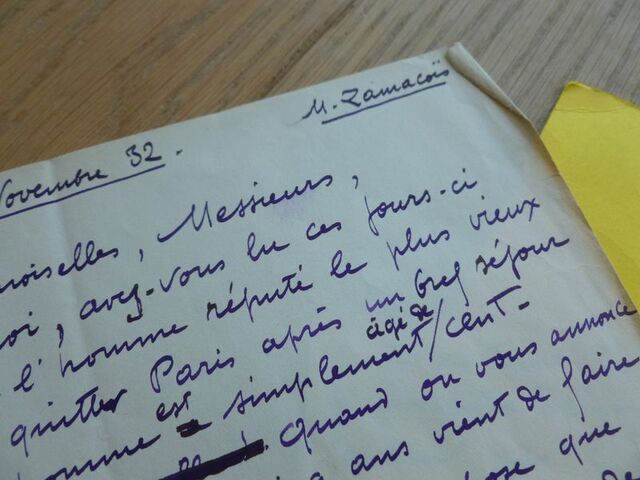 M. Zamacoïs
Novembre 32.
moiselles, Messieurs,
oi, avez-vous lu ces jours-ci
l'homme réputé le plus vieux
quitter Paris après un bref séjour
est âgé de
omme simplement / cent-
! Quand on vous annonce
ans vient de faire
ose que